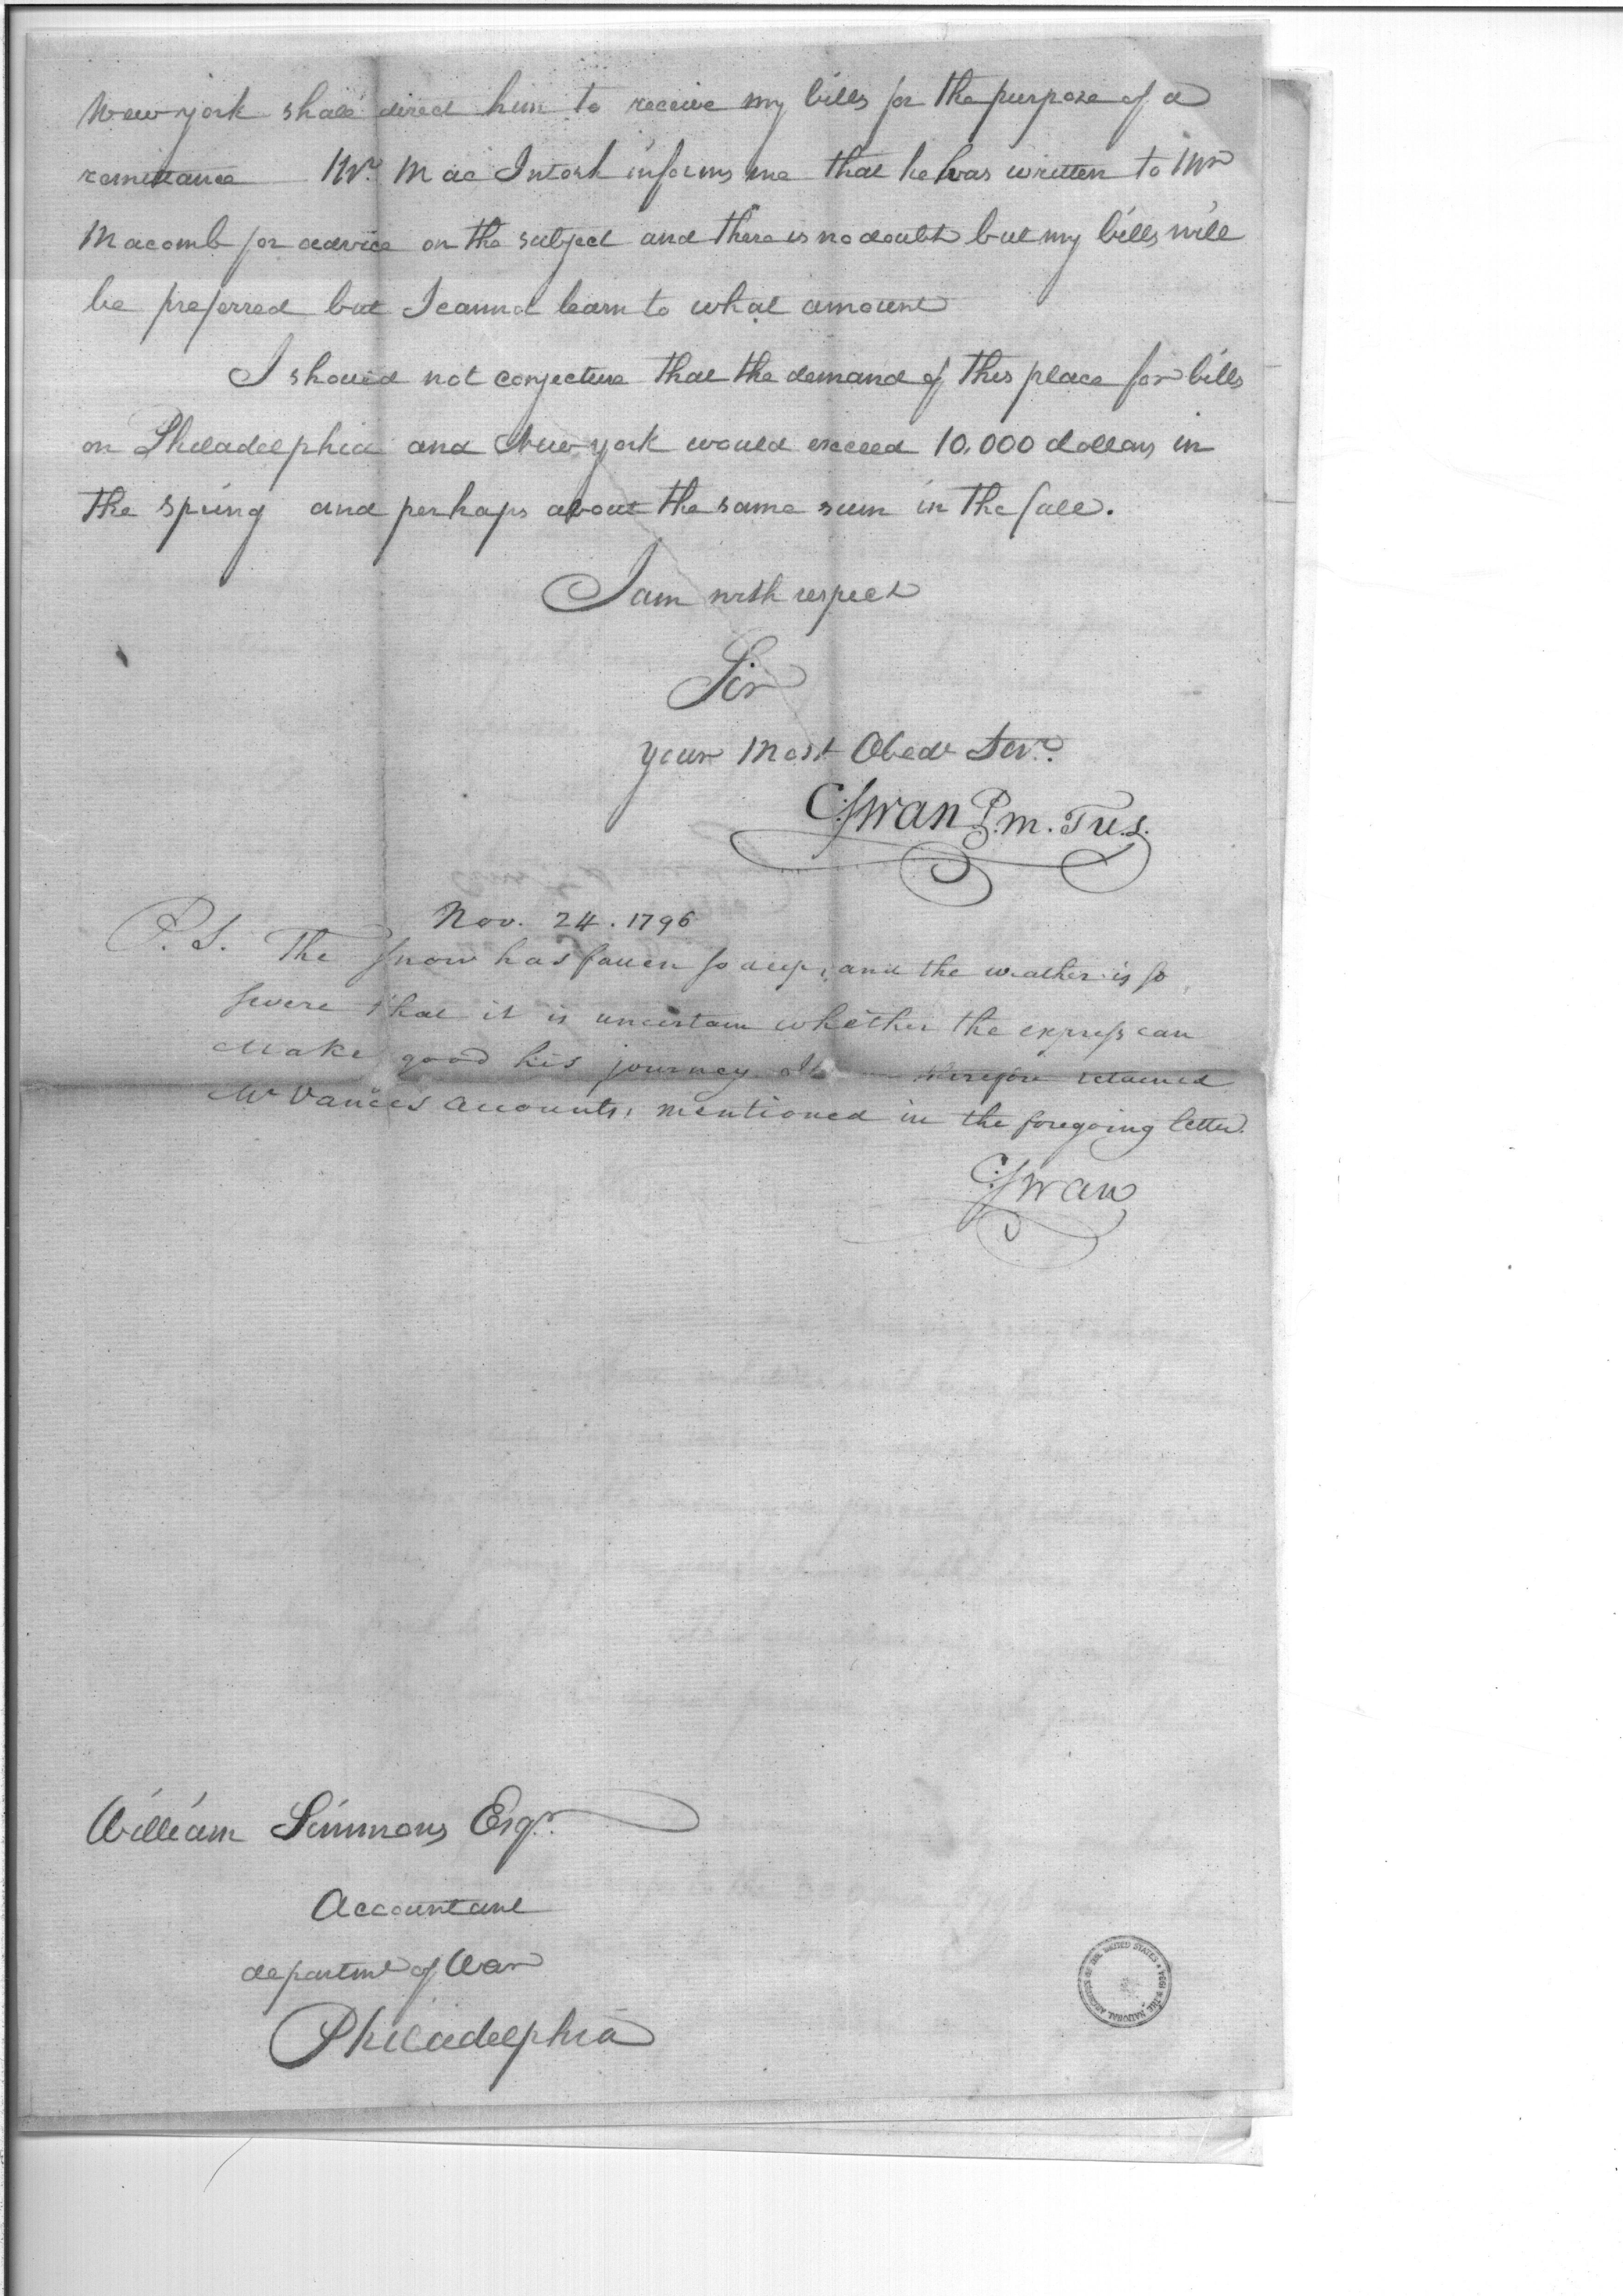 New york shall direct him to receive my bills for the purpose of a
remittance Mr. Mac Intosh informs me that he has written to Mr
Macomb for advice on the subject and there is no doubt but my bills will
be preferred but I cannot learn to what amount
I should not conjecture that the demand of this place for bills
on Philadelphia and New york would exceed 10,000 dollars in
the spring and perhaps about the same sum in the fall.
I am with respect
Sir
your Most Obedt Servt.
C: Swan P.m. T U.S.
Nov. 24. 1796
P.S. The Snow has fallen so deep, and the weather is so
severe that it is uncertain whether the express can
Make good his journey I therefore retained
Mr Vances accounts, mentioned in the foregoing letter.
C: Swan
William Simmons Esqr.
Accountant
departmt of War
Philadelphia
THE NATIONAL ARCHIVES OF THE UNITED STATES • 1934